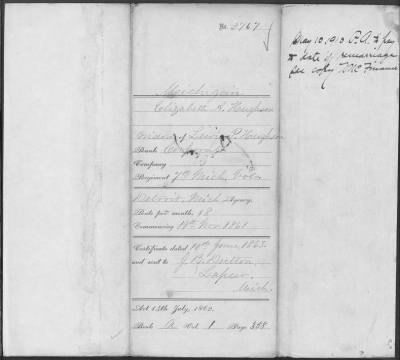 No. 3767
Michigan
Elizabeth R. Hughson
Widow of Lewis P. Hughson
Rank Corporal
Company
Regiment 7th Mich. Vols
Detroit, Mich Agency
Rate per month, $8
Commencing 18th Nov. 1861
Certificate dated 10th June 1863
and sent to J. B.
Lapeer,
Mich.
Act 14th July, 1862.
Book A Vol. 1 Page 338
May 10, 1910 P.A. to pay
to date of remarriage
see copy Finance